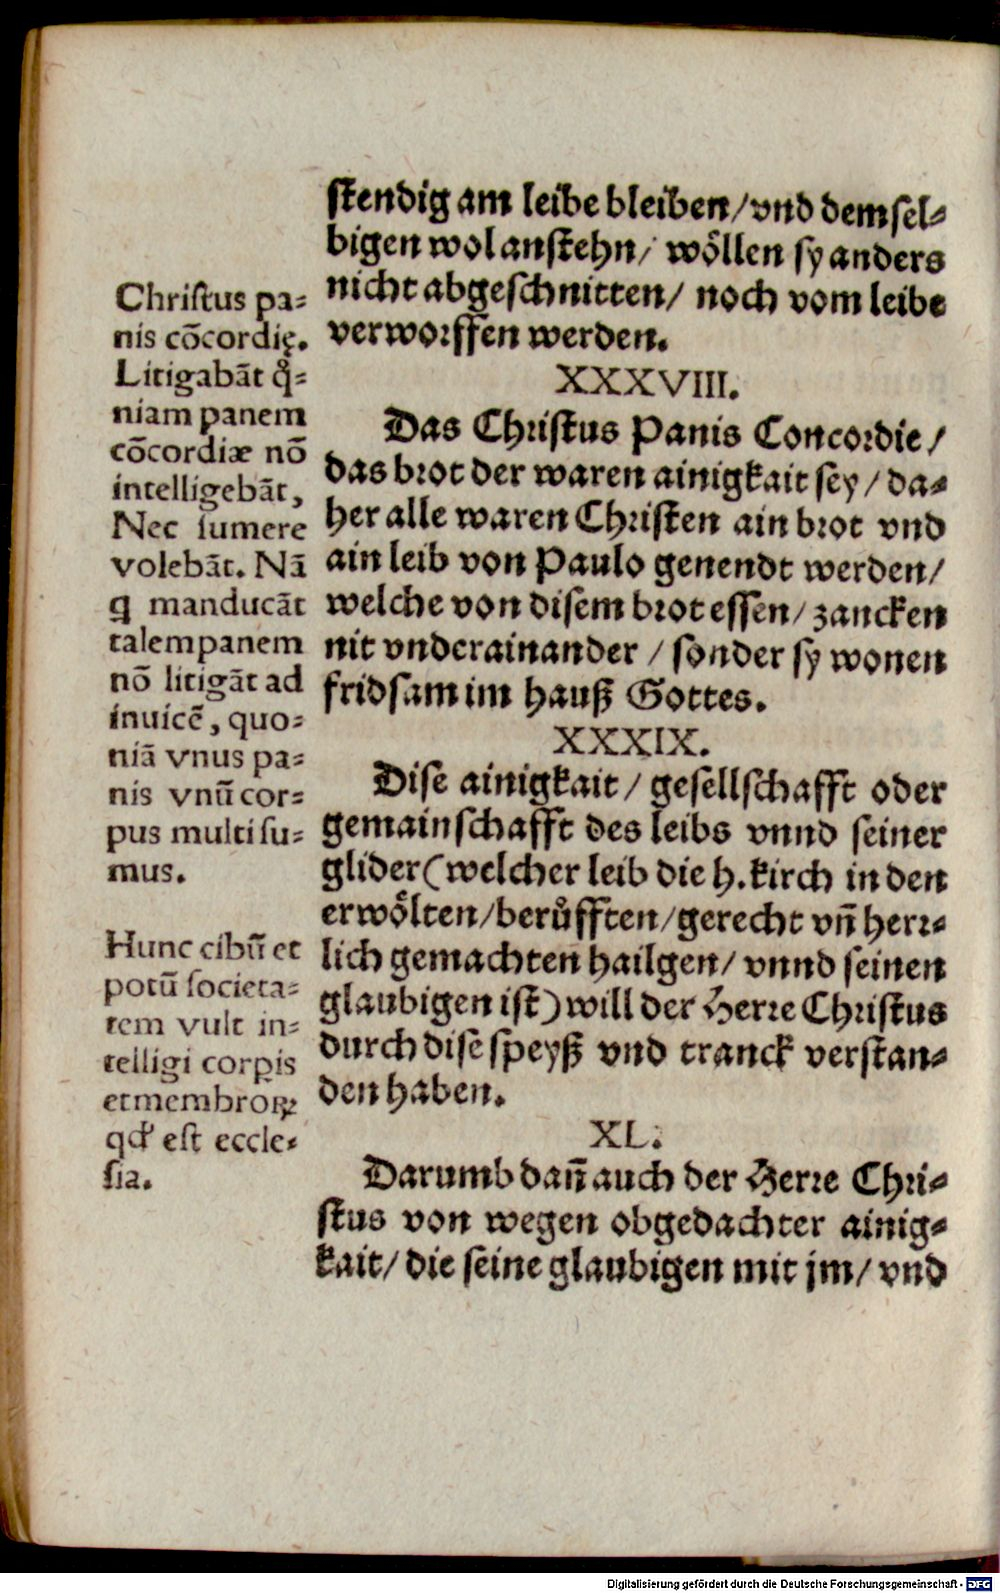 ſtendig am leibe bleiben/vnd demſel⸗
bigen wol anſtehn/ woͤllen ſy anders
nicht abgeſchnitten/ noch vom leibe
verworffen werden.
XXXVIII.
Das Chriſtus Panis Concordie/
das brot der waren ainigkait ſey/da⸗
her alle waren Chriſten ain brot vnd
ain leib von Paulo genendt werden/
welche von diſem brot eſſen/ zancken
nit vnderainander / ſonder ſy wonen
fridſam im hauß Gottes.
XXXIX.
Diſe ainigkait/ geſellſchafft oder
gemainſchafft des leibs vnnd ſeiner
glider(welcher leib die h.kirch in den
erwoͤlten/beruͦfften/gerecht vn̄ herr⸗
lich gemachten hailgen/ vnnd ſeinen
glaubigen iſt) will der Herre Chriſtus
durch diſe ſpeyß vnd tranck verſtan⸗
den haben.
XL.
Darumb dan̄ auch der Herre Chri⸗
ſtus von wegen obgedachter ainig⸗
kait/ die ſeine glaubigen mit jm/ vnd
Chriſtus pa⸗
nis cōcordię.
Litigabāt qͦ⸗
niam panem
cōcordiæ nō
intelligebāt,
Nec ſumere
volebāt. Nā
q manducāt
talem panem
nō litigāt ad
inuicē, quo⸗
niā vnus pa⸗
nis vnū cor⸗
pus multi ſu⸗
mus.
Hunc cibū et
potū ſocieta⸗
tem vult in⸗
telligi corꝑis
et membrōꝝ
qd' eſt eccle⸗
ſia.
Digitalisierung gefördert durch die Deutsche Forschungsgemeinschaft - DFG